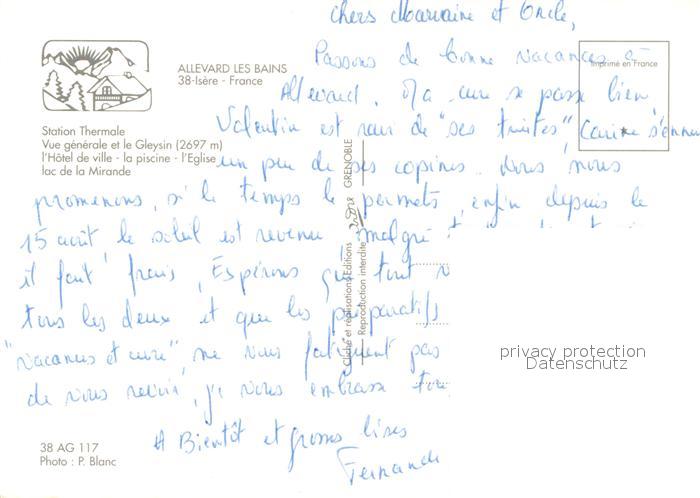 chers Marraine et Oncle,
Passons de bonne vacances à
Allevard. Ma cure se passe bien
Valentin est ravi de "ses truites" Carine s'ennuie
un peu de ses copines. Nous nous
promenons, si le temps le permets, enfin depuis le
15 août, le soleil est revenu, malgré
il fait frais, Espérons que tout v
tous les deux et que les préparatifs
"vacances et cure" ne vous fatiguent pas
de vous revoir, je vous embrasse tou
A Bientôt et grosses bises
Fernande
ALLEVARD LES BAINS
38-Isère - France
Station Thermale
Vue générale et le Gleysin (2697 m)
l'Hôtel de ville - la piscine - l'Eglise
lac de la Mirande
Imprimé en France
Cliché et réalisations Editions GRENOBLE
Reproduction interdite
privacy protection
Datenschutz
38 AG 117
Photo : P. Blanc